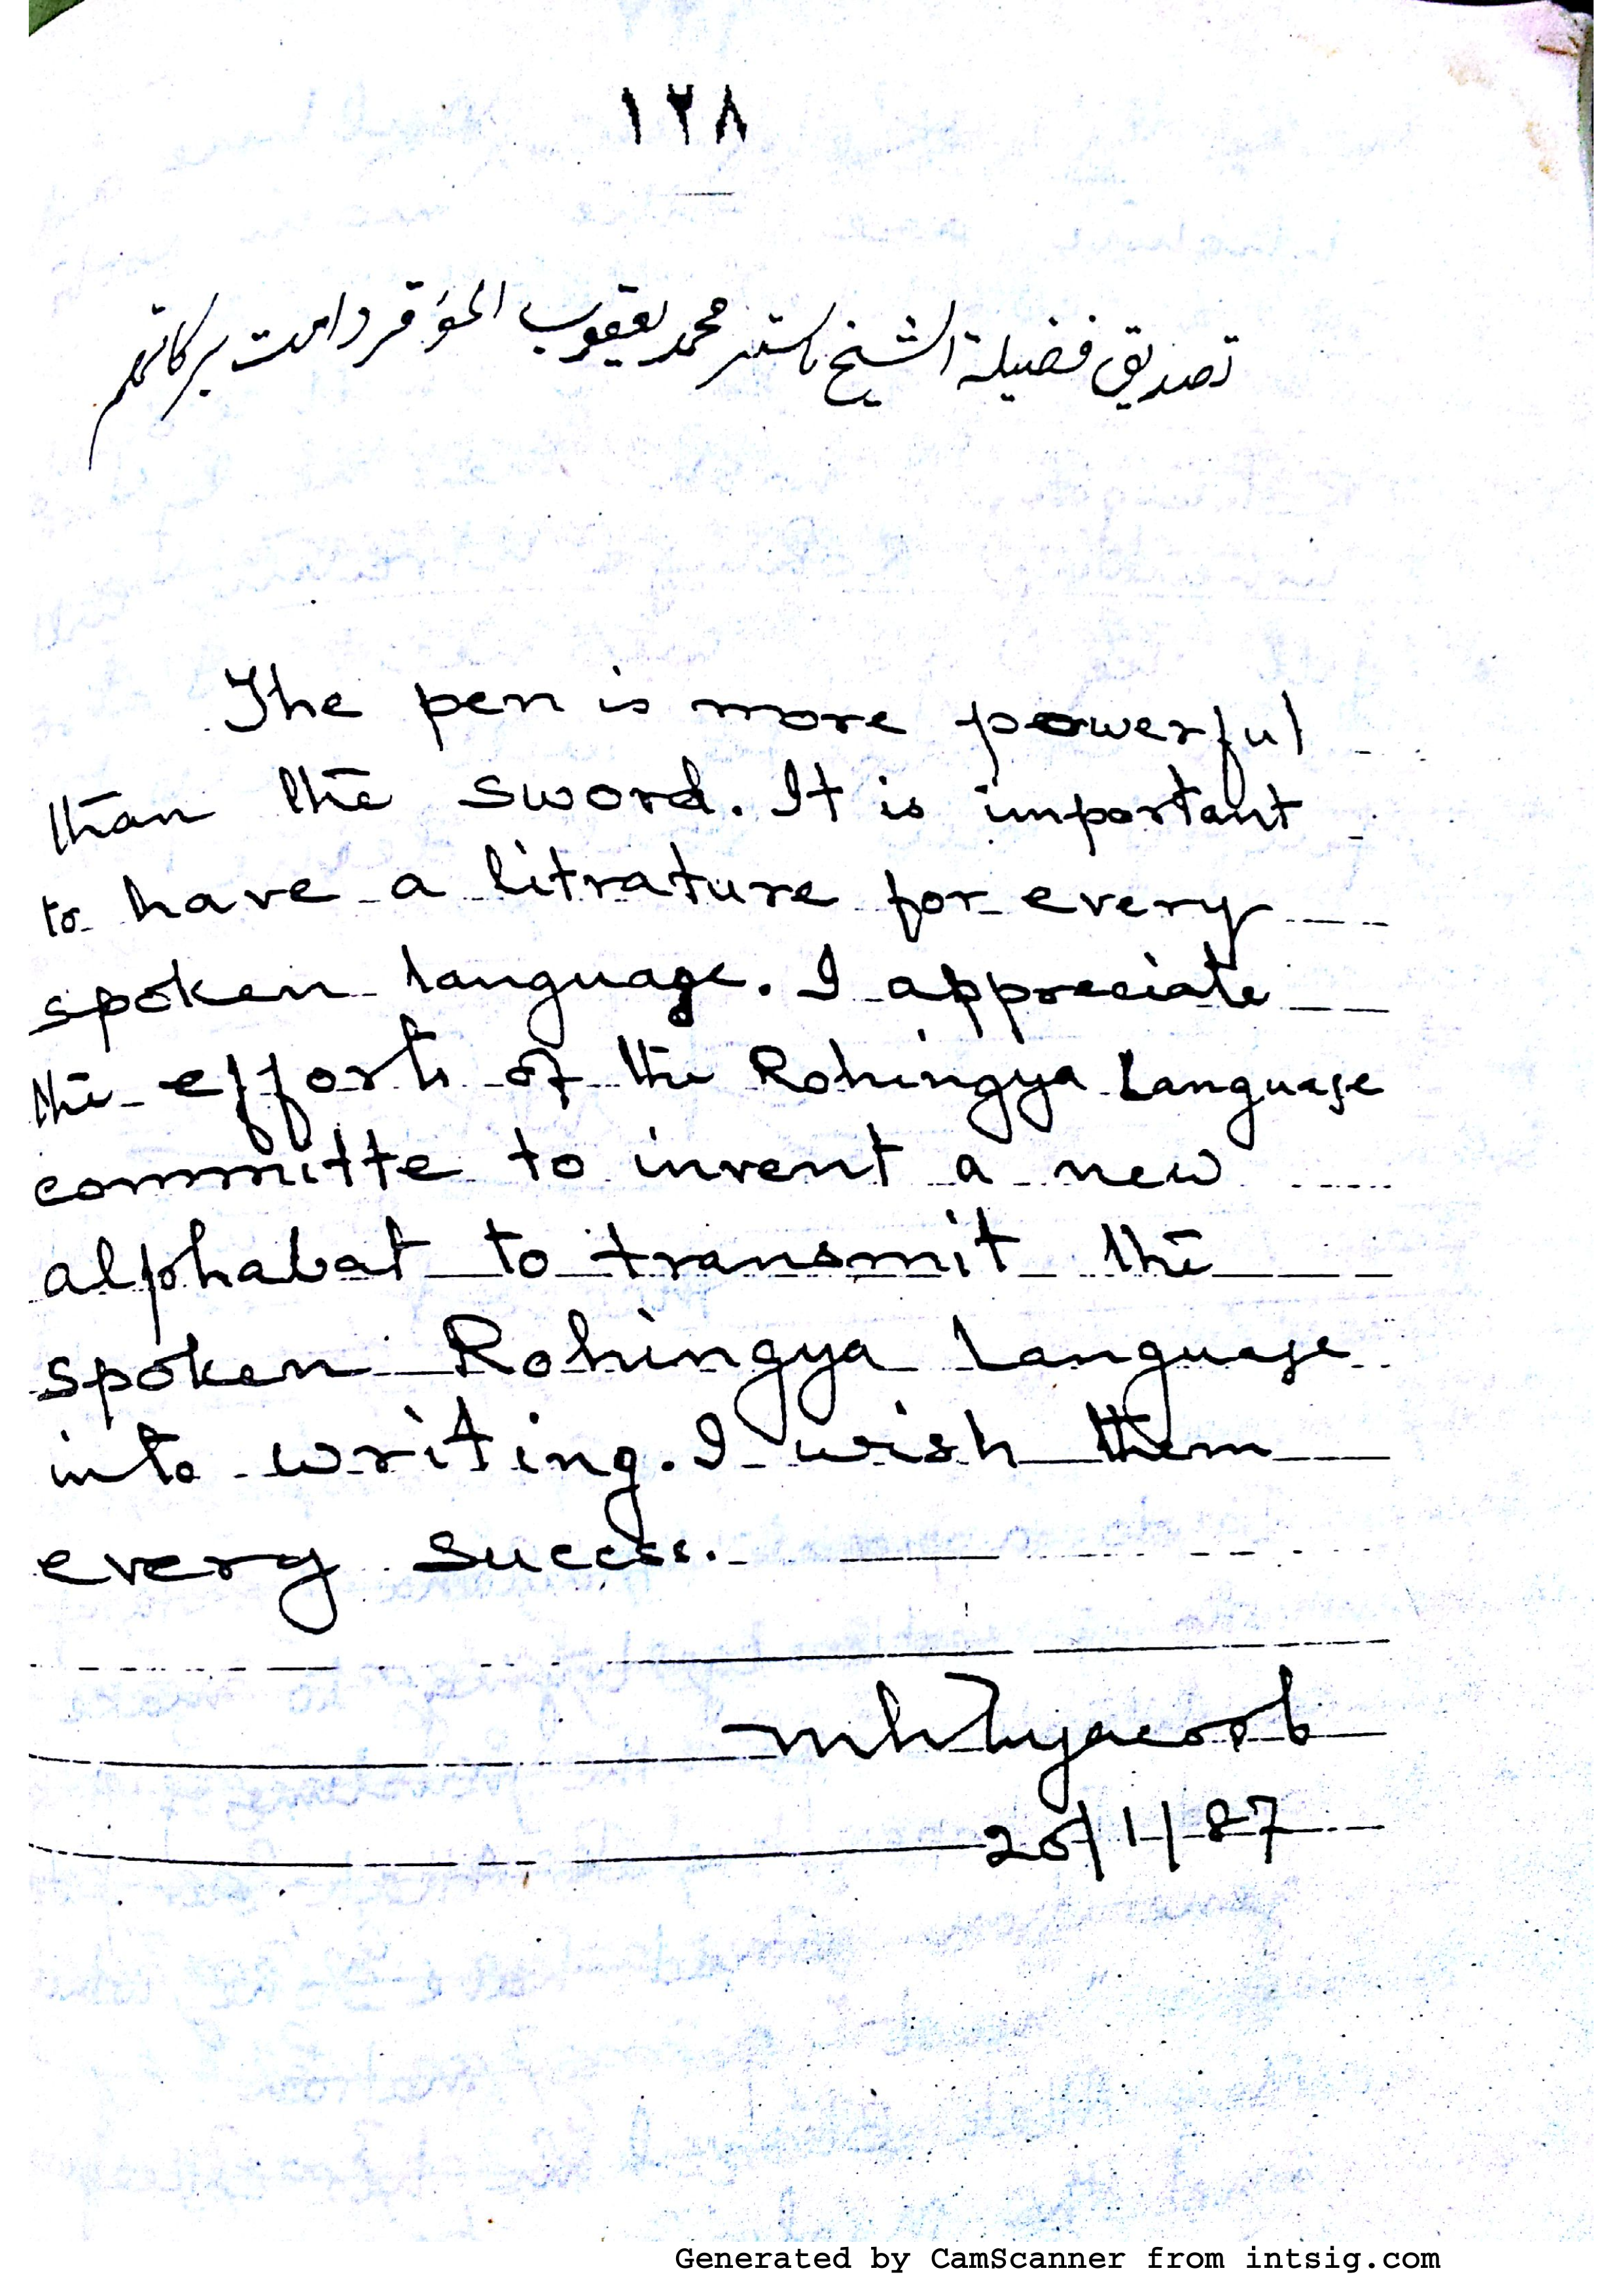 ١٢٨
تصديق فضيلة الشيخ ماستر محمد يعقوب المؤقر دامت بركاتهم
The pen is more powerful
than the sword. It is important
to have a litrature for every
spoken language. I appreciate
the efforts of the Rohingya Language
committe to invent a new
alphabat to transmit the
spoken Rohingya Language
into writing. I wish them
every success.
20/1/87
Generated by CamScanner from intsig.com